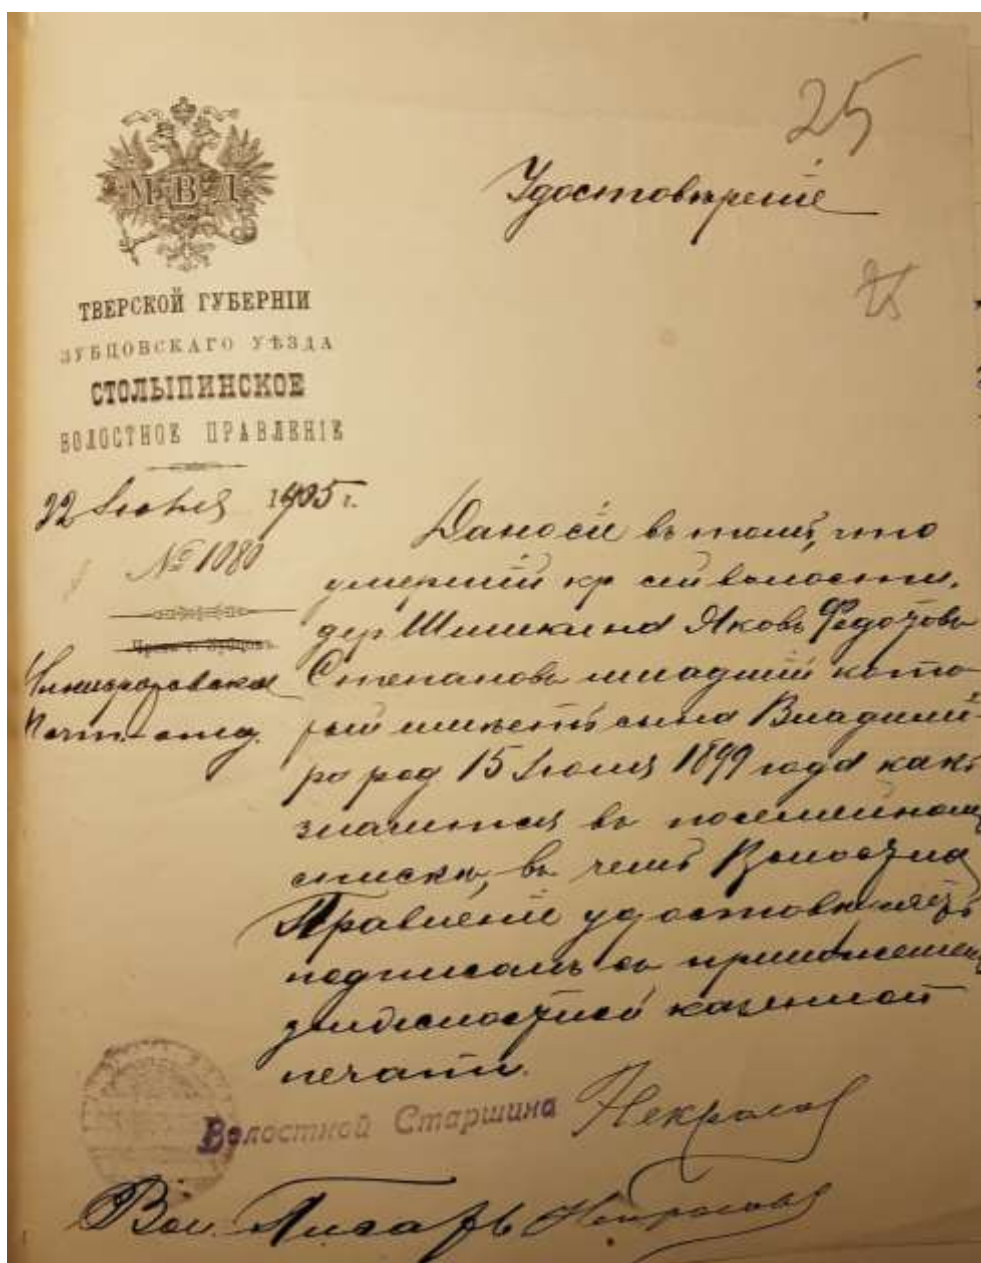 25
Удостовѣреніе
25
М.В.Д.
ТВЕРСКОЙ ГУБЕРНІИ
ЗУБЦОВСКАГО УѢЗДА
СТОЛЫПИНСКОЕ
ВОЛОСТНОЕ ПРАВЛЕНІЕ
22 1905 г.
№ 1080
Чрезъ г. Зубцовъ
Почт. отд.
Дано сіе въ томъ, что
умершій кр сей волости,
дер Шишкина Яковъ Федотовъ
Степановъ младшій кото
рый имѣетъ сына Владимі-
ра род 15 1899 года какъ
значится въ посемейномъ
спискѣ, въ чемъ Волостное
Правленіе удостовѣряетъ
подписомъ съ приложеніемъ
казенной
печати.
Волостной Старшина Некрасов
Вол. Писарь Некрасовъ